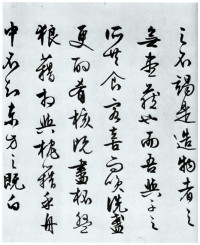 之不竭是造物者之
無盡藏也而吾與子之
所共食客喜而笑洗盞
更酌肴核既盡杯盤
狼藉相與枕藉乎舟
中不知東方之既白